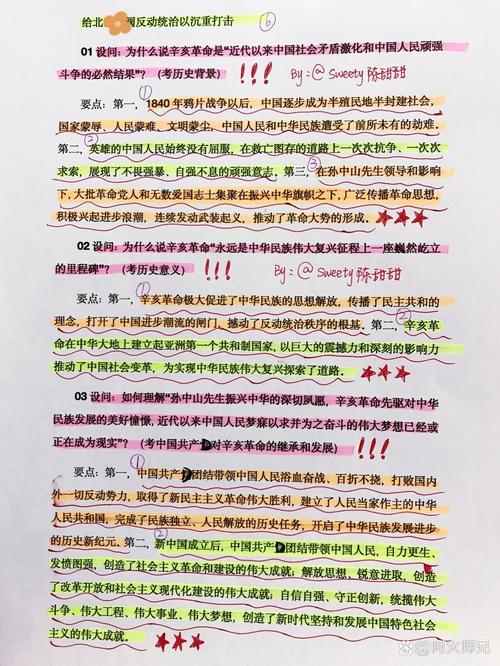 给北阀反动统治以沉重打击 ⑥
01 设问：为什么说辛亥革命是“近代以来中国社会矛盾激化和中国人民顽强
斗争的必然结果”？（考历史背景）!!! By：@Sweety陈甜甜
①
要点：第一，1840年鸦片战争以后，中国逐步成为半殖民地半封建社会，
国家蒙辱、人民蒙难、文明蒙尘，中国人民和中华民族遭受了前所未有的劫难。
第二，②英雄的中国人民始终没有屈服，在救亡图存的道路上一次次抗争、一次次
求索，展现了不畏强暴、自强不息的顽强意志。第三，③在孙中山先生领导和影响
下，大批革命党人和无数爱国志士集聚在振兴中华旗帜之下，广泛传播革命思想，
积极兴起进步浪潮，连续发动武装起义，推动了革命大势的形成。★★★
02 设问：为什么说辛亥革命“永远是中华民族伟大复兴征程上一座巍然屹立
的里程碑”？（考历史意义）!!! By：@Sweety陈甜甜
要点：第一，①辛亥革命极大促进了中华民族的思想解放，传播了民主共和的
理念，打开了中国进步潮流的闸门，撼动了反动统治秩序的根基。第二，②辛亥革
命在中华大地上建立起亚洲第一个共和制国家，以巨大的震撼力和深刻的影响力
推动了中国社会变革，为实现中华民族伟大复兴探索了道路。★★★
03 设问：如何理解“孙中山先生振兴中华的深切夙愿，辛亥革命先驱对中华
民族发展的美好憧憬，近代以来中国人民梦寐以求并为之奋斗的伟大梦想已经或
正在成为现实”？（考中国共产 对辛亥革命的继承和发展）!!!
①
要点：第一，中国共产 团结带领中国人民浴血奋战、百折不挠，打败国内
外一切反动势力，取得了新民主主义革命伟大胜利，建立了人民当家作主的中华
人民共和国，完成了民族独立、人民解放的历史任务，开启了中华民族发展进步
的历史新纪元。第二，②新中国成立后，中国共产 团结带领中国人民，自力更生、
发愤图强，创造了社会主义革命和建设的伟大成就；解放思想、锐意进取，创造
了改革开放和社会主义现代化建设的伟大成就；自信自强、守正创新，统揽伟大
斗争、伟大工程、伟大事业、伟大梦想，创造了新时代坚持和发展中国特色社会
主义的伟大成就。★★★